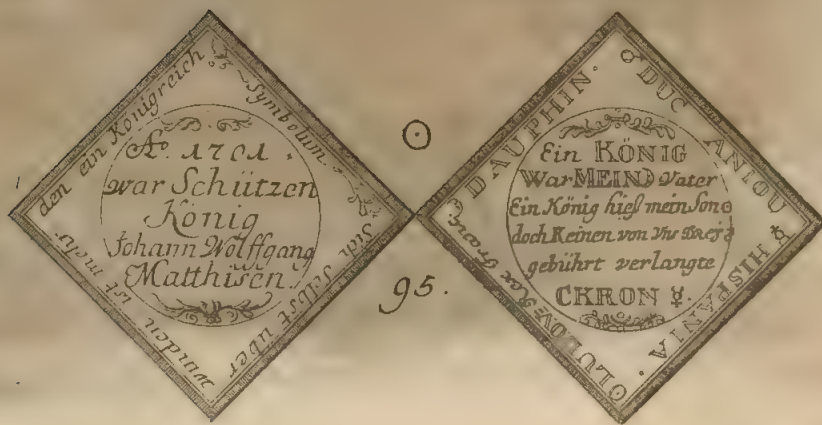 Symbolum
Sich selbst über
winden ist mehr.
den ein Königreich
Aº. 1701.
war Schützen
König
Johann Wolffgang
Matthisen.
☉
95.
☽ DAUPHIN.
♂ DUC ANIOU
☿ HISPANIA.
☉ LUDOV: Rex Franc:
Ein KÖNIG
War MEIN ☽ Vater
Ein König hieß mein Son ☉
doch Keinen von Vns Dreÿ
gebührt verlangte
CKRON ☿.